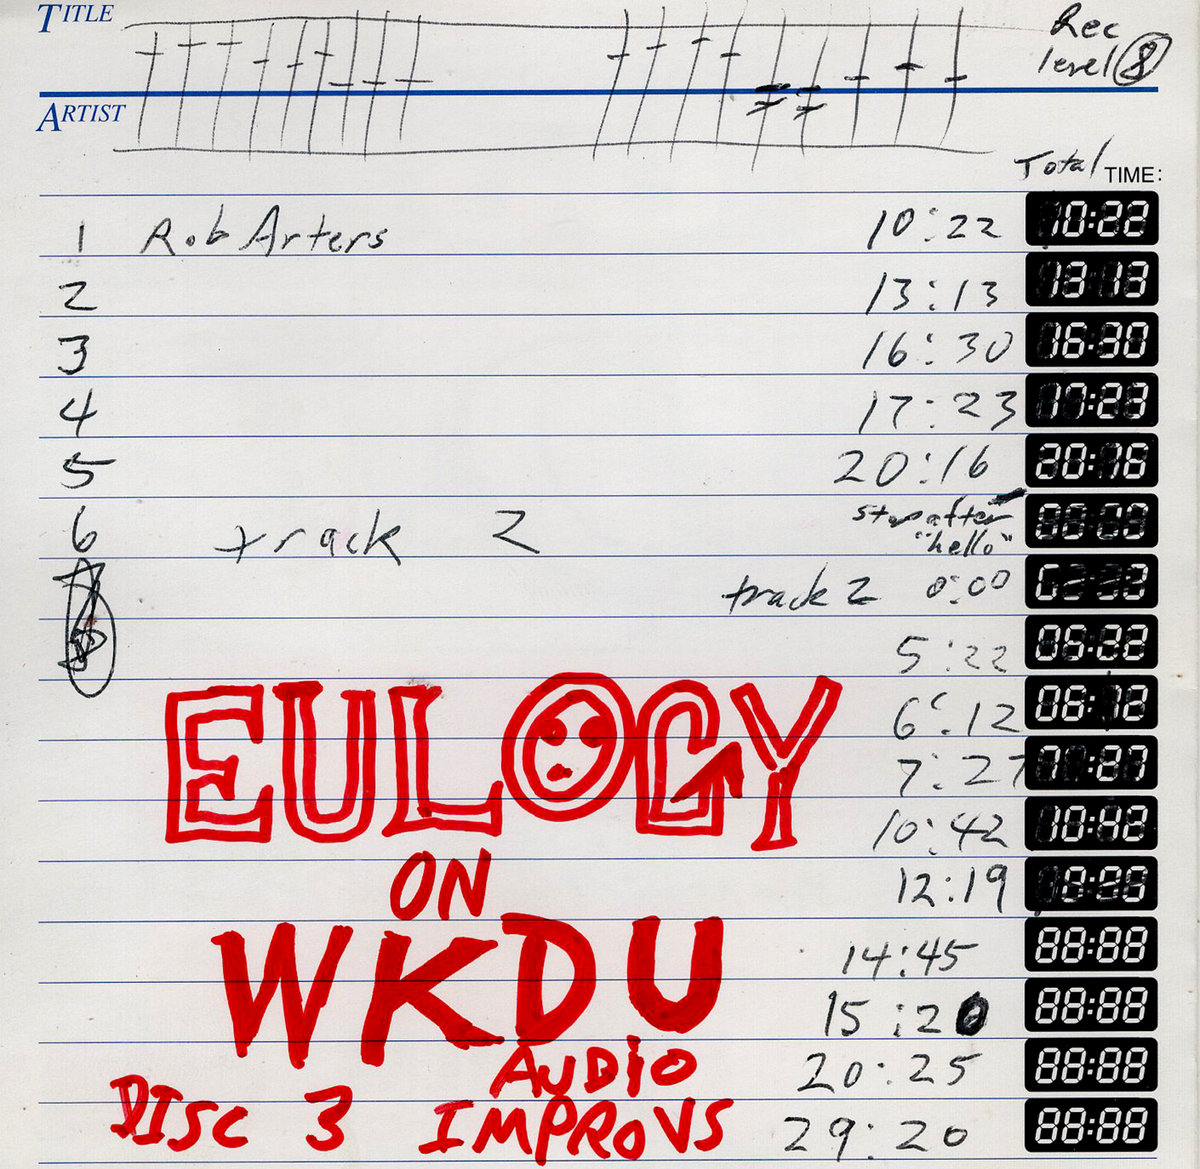 TITLE
Rec
level 8
ARTIST
Total TIME:
1 Rob Arters 10:22 10:22
2 13:13 13:13
3 16:30 16:30
4 17:23 17:23
5 20:16 20:16
6 track 2 stop after
"hello"
track 2 0:00
5:22 05:22
6:12 06:12
7:27 07:27
10:42 10:42
12:19
14:45 88:88
15:20 88:88
20:25 88:88
29:20 88:88
EULOGY
ON
WKDU
AUDIO
DISC 3 IMPROVS